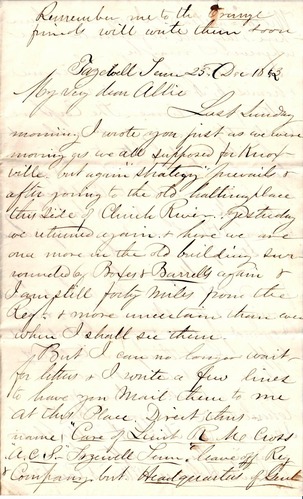 Remember me to the
friends will write them soon
Tazewell Tenn 25 Dec 1863
My very dear Allie
Last Sunday
morning I wrote you just as we were
moving as we all supposed for Knox-
ville. but again "strategy" prevails &
after going to the old halting place
this side of Clinch River. Yesterday
we returned again & here we are
once more in the old building sur-
rounded by Boxes & Barrells again &
I am still forty miles from the
Regt. & more uncertain than ever
when I shall see them.
But I can no longer wait
for letters & I write a few lines
to have you Mail them to me
at this Place. Direct thus
name "Care of Lieut R. McCross
A.C.S. Tazewell Tenn. leave off Reg
& Company but Headquarters of